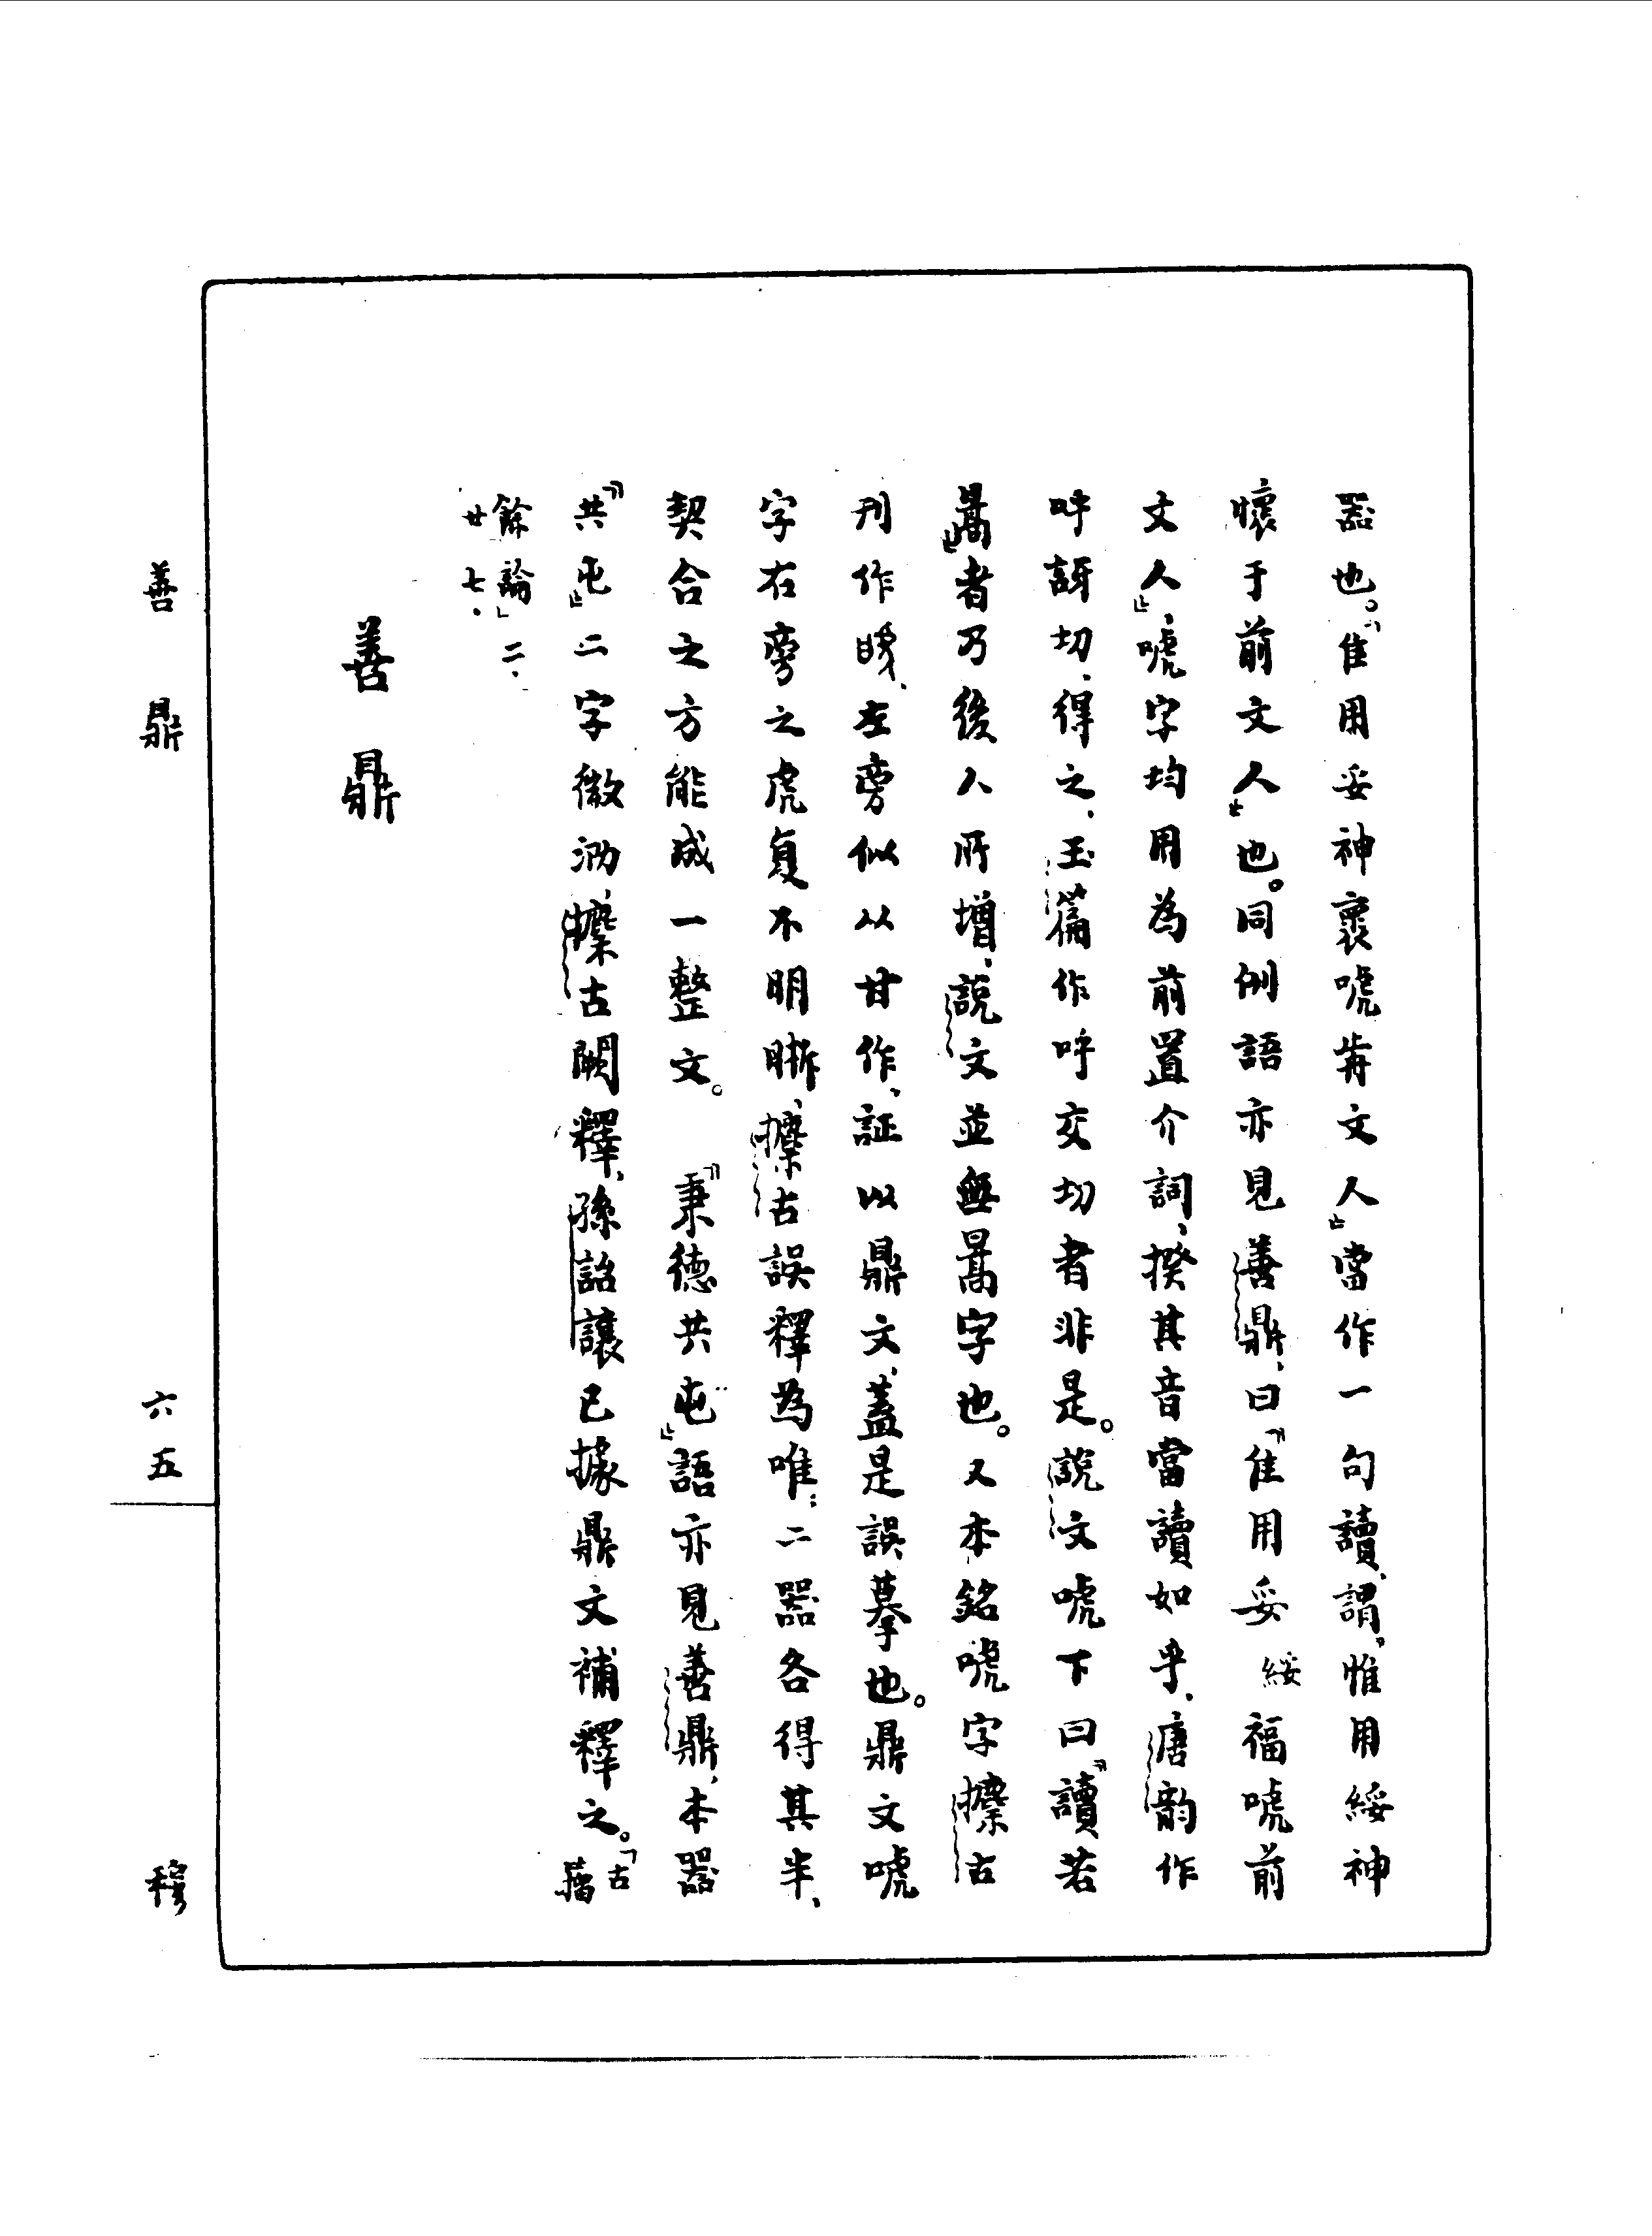 器也。「隹用妥神褱唬歬文人」當作一句讀、謂「惟用綏神
懷于前文人」也。同例語亦見善鼎、曰「隹用妥綏福唬前
文人」、唬字均用為前置介詞、揆其音當讀如乎、唐韵作
呼訝切、得之、玉篇作呼交切者非是。說文唬下曰「讀若
暠」者乃後人所增、說文並無暠字也。又本銘唬字攈古
刊作、左旁似从甘作、証以鼎文、蓋是誤摹也。鼎文唬
字右旁之虎复不明晰、攈古誤釋為唯：二器各得其半、
契合之方能成一整文。「秉德共屯」語亦見善鼎、本器
「共屯」二字微泐、攈古闕釋、孫詒讓已據鼎文補釋之。「古籀
餘論」二.廿七.
善鼎
善鼎 六五 穆